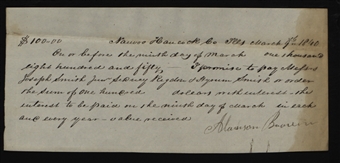 $ 100-00 Nauvoo Hancock Co Ills March 9th 1840
On or before the ninth day of March one thousand
eight hundred and fifty, I promise to pay Messrs
Joseph Smith Junr Sidney Rigdon & Hyrum Smith or order
the sum of one hundred dollars with interest - the
interest to be paid on the ninth day of March in each
and every year - value received